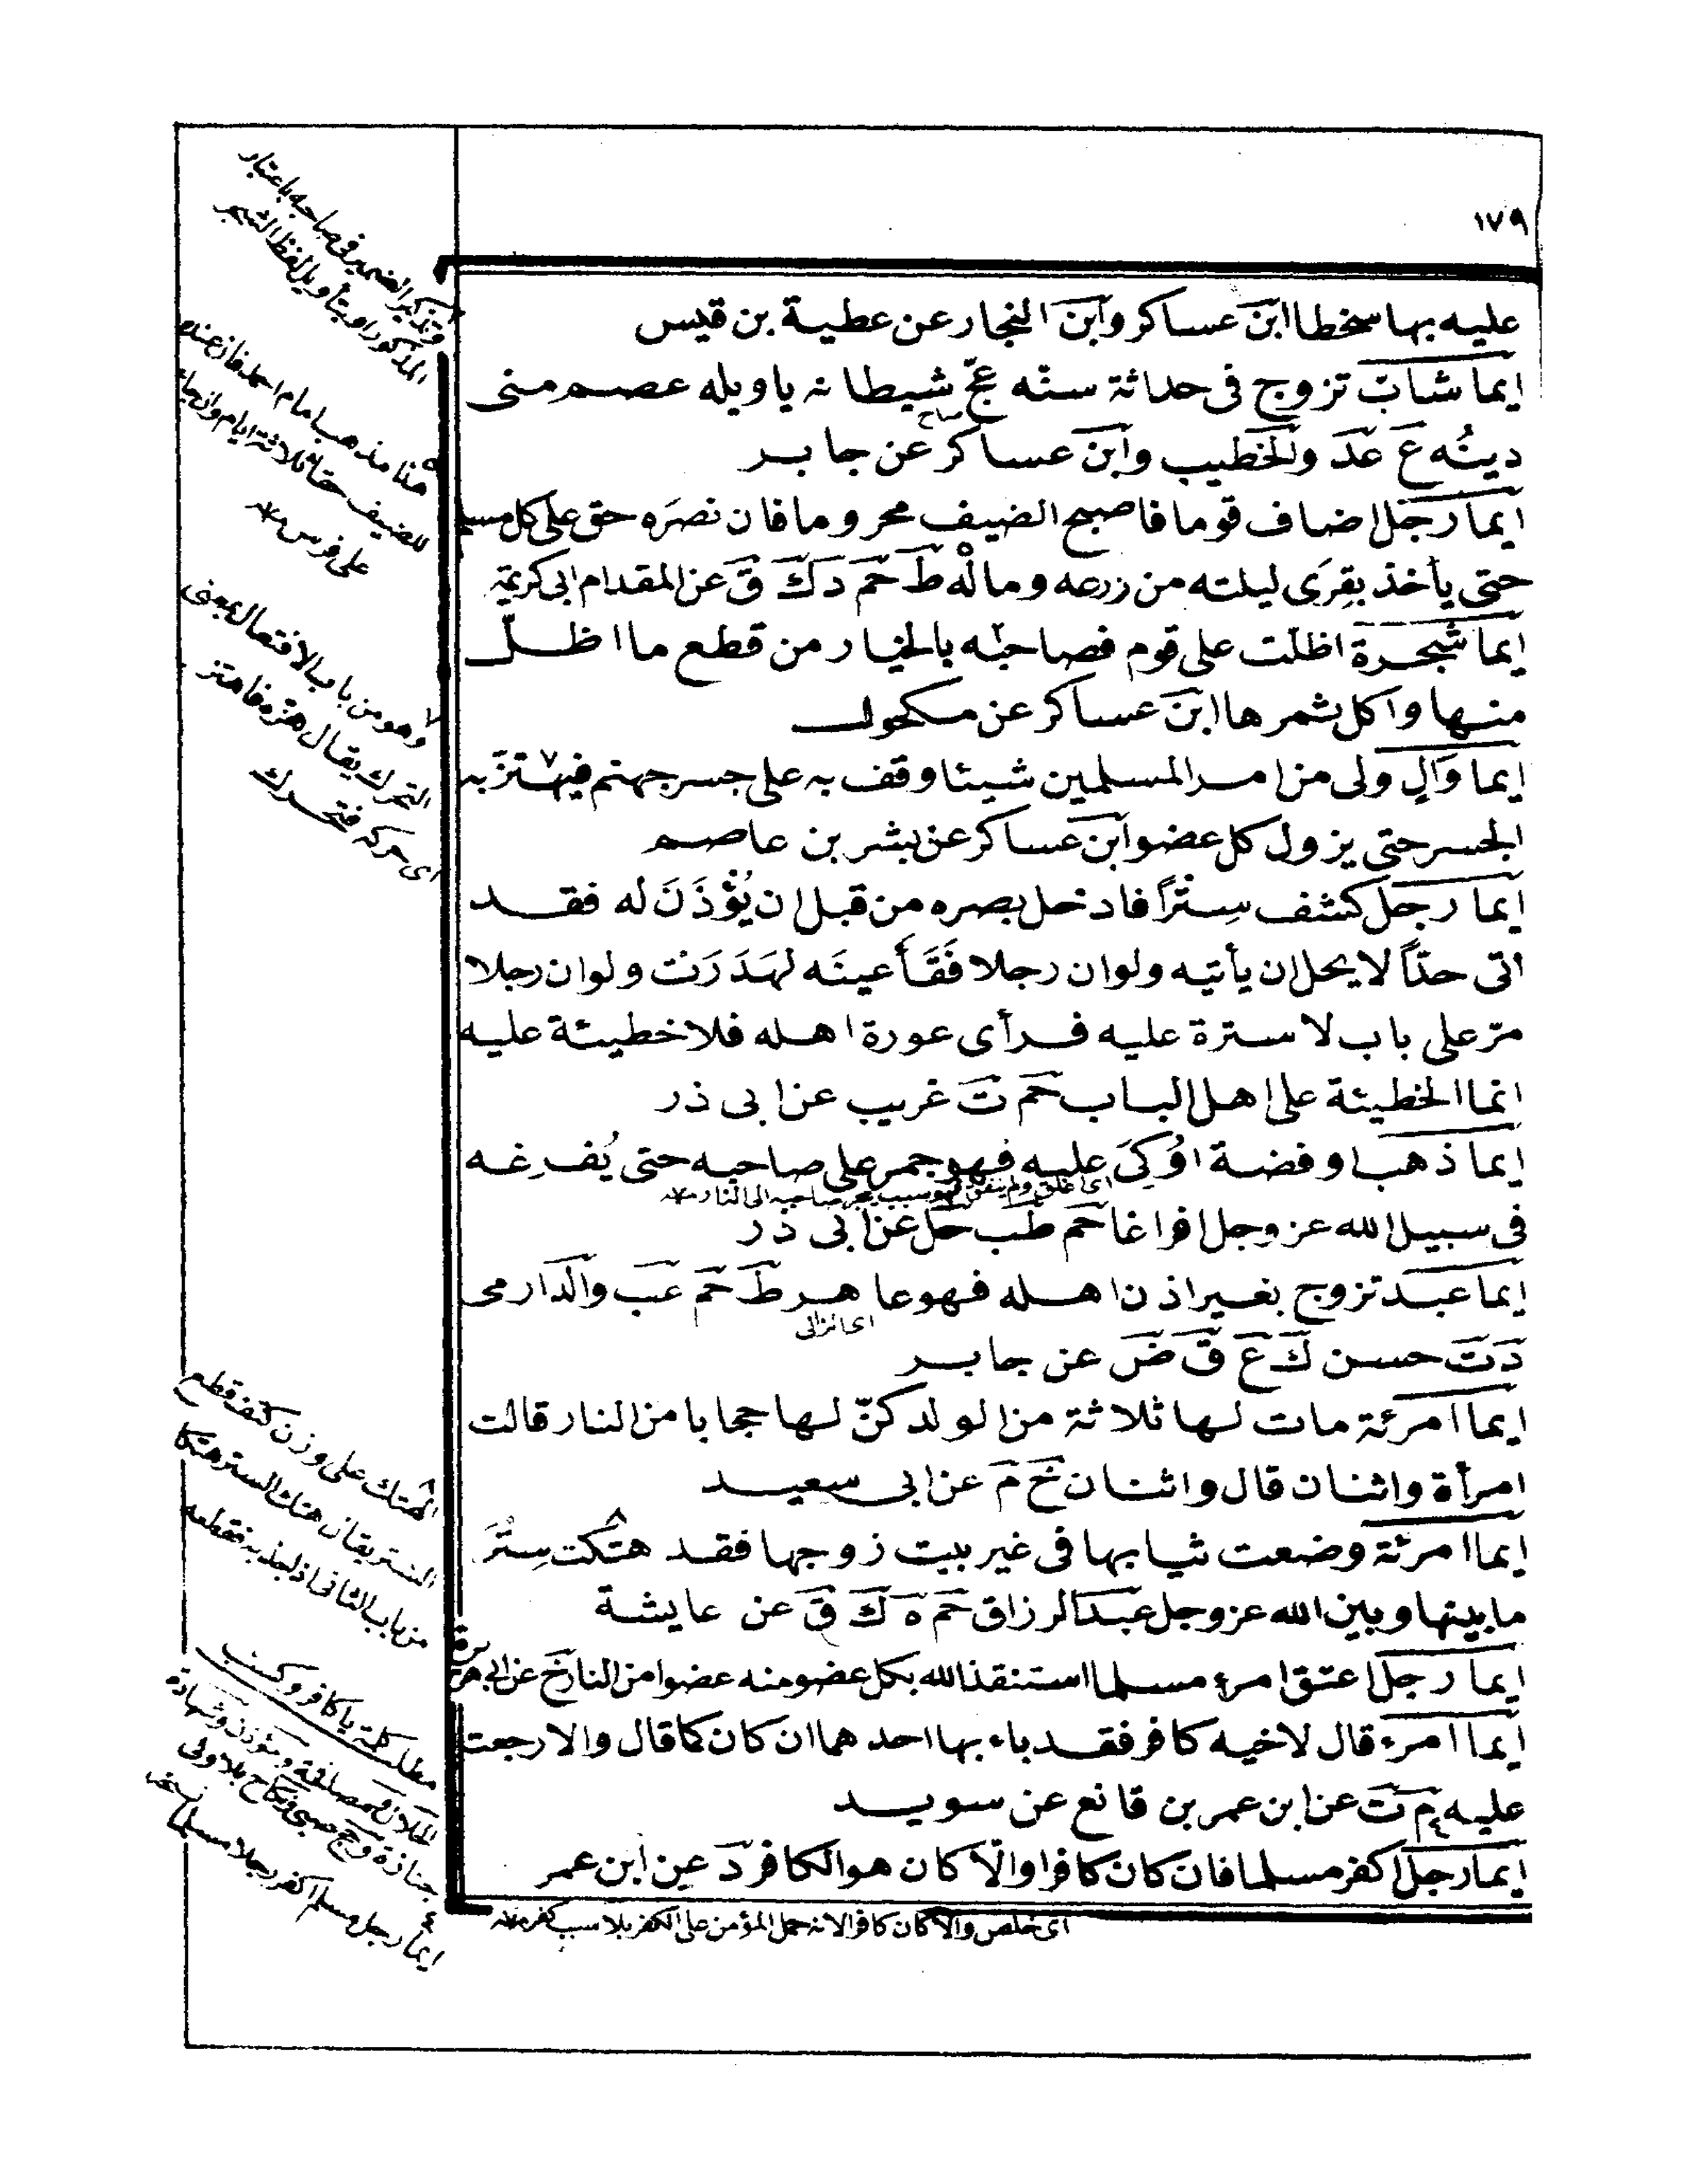 ١٧٩
عليه بها سخطا ابن عساكر وابن النجار عن عطية بن قيس
ايما شاب تزوج فى حداثة سنه عجّ شيطانه ياويله عصم منى
صاح
دينُه ع عد والخطيب وابن عساكر عن جابر
ايما رجل اضاف قوما فاصبح الضيف محروما فان نصرَه حق على كل مسلم
حتى يأخذ بِقِرَى ليلته من زرعه وماله ط حم د ك ق عن المقدام ابى كريمة
ايما شجرة اظلت على قوم فصاحبه بالخيار من قطع ما اظلّ
منها واكل ثمرها ابن عساكر عن مكحول
ايما والٍ ولى من امر المسلمين شيئا وقف به على جسر جهنم فيهتزّ به
الجسر حتى يزول كل عضو ابن عساكر عن بشر بن عاصم
ايما رجل كشف سِتْرًا فادخل بصره من قبل ان يُؤْذَنَ له فقد
اتى حدّاً لا يحل ان يأتيه ولوان رجلا فَقَأَ عينَه لهَدَرَت ولوان رجلا
مرّ على باب لا سترة عليه فرأى عورة اهله فلا خطيئة عليه
انما الخطيئة على اهل الباب حم ت غريب عن ابى ذر
ايما ذهب او فضة اُوْكِىَ عليه فهو جمر على صاحبه حتى يُفرغه
اى اغلق ولم ينفق فهو سبب يجر صاحبه الى النار
فى سبيل الله عز وجل افراغا حم طب حل عن ابى ذر
ايما عبد تزوج بغير اذن اهله فهو عاهر ط حم عب والدارمى
اى زانى
د ت حسن ك ع ق ض عن جابر
ايما امرئة مات لها ثلاثة من الولد كنّ لها حجابا من النار قالت
امرأة واثنان قال واثنان خ م عن ابى سعيد
ايما امرئة وضعت ثيابها فى غير بيت زوجها فقد هتكت سِتْرَ
ما بينها وبين الله عز وجل عبد الرزاق حم ه ك ق عن عايشة
ايما رجل اعتق امرء مسلما استنقذ الله بكل عضو منه عضوا من النار خ عن ابى هريرة
ايما امرء قال لاخيه كافر فقد باء بها احدهما ان كان كما قال والا رجعت
عليه م ت عن ابن عمر بن قانع عن سويد
ايما رجل اكفر مسلما فان كان كافرا والّا كان هو الكافر د عن ابن عمر
اى خلص والا كان كافرا لانه حمل المؤمن على الكفر بلا سبب كفر
وتذكير الضمير فى صاحبه باعتبار
المذكور او بتأويل لفظ الشجر
هذا مذهب امام احمد فان عنده
للضيف حقا ثلاثة ايام وان جاء
على فرس
وهو من باب الافتعال بمعنى
التحرك يقال هزه فاهتز
اى حركه فتحرك
الهتك على وزن كتف قطع
الستر يقال هتك الستر هتكا
من باب الثانى اذا جذبه فقطعه
مطلب كلمة يا كافر وكسب
جنازة وحج صبى ونكاح بلا ولى
ايما رجل مسلم اكفر رجلا مسلما نسخه